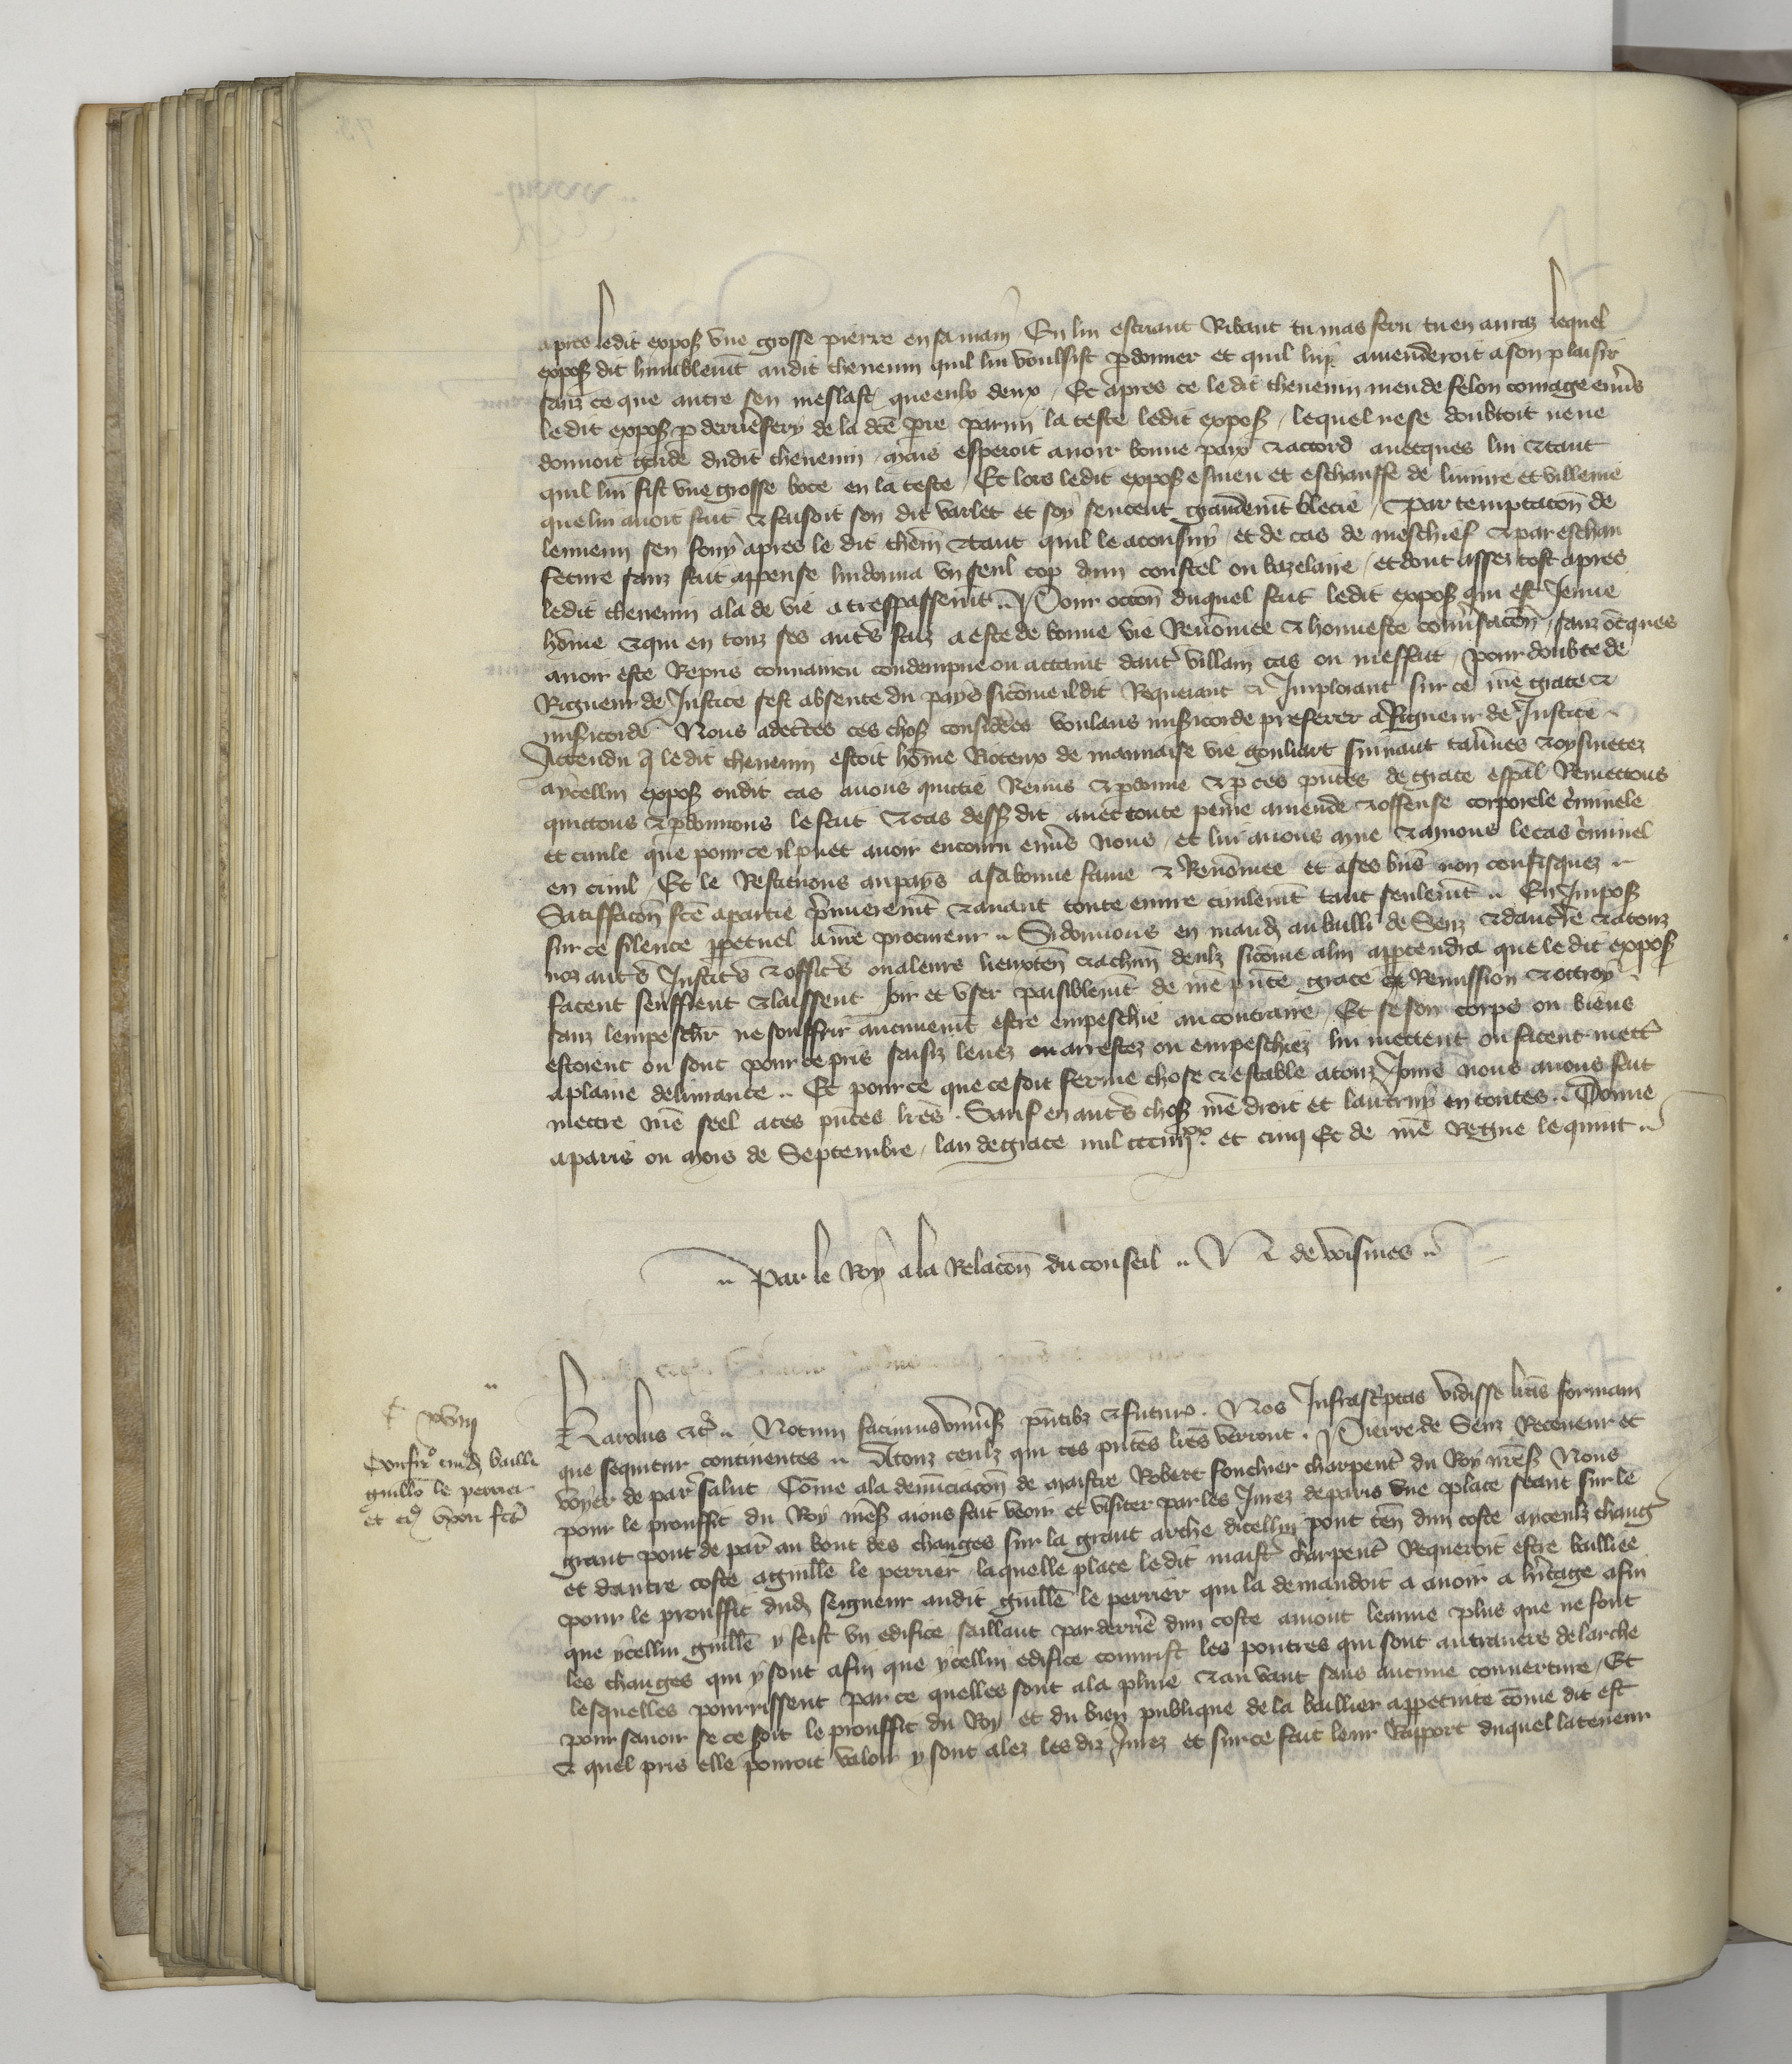 apres ledit expoš vne grosse pierre en sa main En lui escriant Ribaut tu mas feru tu en auras lequel
expoš dit humblemt audit theuenin quil lui voulsist pdonner et quil lui amenderoit a son plaisir
sanz ce que autre sen meslast que eulx deux / Et apres ce ledit theuenin meu de felon courage enuˢ
ledit expoš p derriēˢ fery de la dcē prre parmi la teste ledit expoš / lequel ne se doubtoit ne ne
donnoit garde dudit theuenin / mais esperoit auoir bonne paix & accord auecques lui & tant
quil lui fist vne grosse boce en la teste / Et lors ledit expoš esmeu et eschauffe de liniure et villenie
que lui auoit fait & faisoit son dit varlet et soy sentent grandemt blecie / Par temptacōn de
lennemi sen fouy apres le dit theuī & tant quil le aconsuy / et de cas de meschief & par eschau
feture sanz fait appense lui donna vn seul cop dun coustel ou bazelaire / et dont assez tost apres
ledit theuenin ala de vie a trespassemt .. Pour occōn duquel fait ledit expoš qui est Jeune
hōme & qui en touz ses autˢ faiz a este de bonne vie Renōmee & honneste conuˢsacōn / sanz ōcques
auoir este Repris conuaincu condempne ou actaint dautˢ villain cas ou meffait / pour doubte de
Rigueur de Justice sest absente du pays sicōme il dit Requerant & Implorant sur ce nrē grace &
misˢicorde Nous adecˢtes ces choš considēes voulans misˢicorde preferer a Rigueur de Justice
Attendu q̄ le dit theuenin estoit hōme Roteux de mauuaise vie gouliart suiuant tauˢnes & oysiuetez
a ycellui expoš oudit cas auons quictie Remis & pdonne & p ces pn̄tes de grace espāl Remectons
quictons & pdonnons le fait & cas desš dit auec toute peine amende & offense corporele cˢiminele
et ciuile que pour ce il puet auoir encouru enuˢs nous / et lui auons mue & muons le cas cˢiminel
en ciuil / Et le Restituons au pays a sa bonne fame & Renōmee et a ses bn̄s non confisquez ..
Satiffacōn fcē a partie p̄miereēmt & auant toute euure ciuilemt tant seulemt .. En Impoš
sur ce silence ppetuel a nrē procureur .. Si donnons en mand au bailli de Senz & dauc̄rre & a touz
noz autˢ Justicˢ & officˢ ou a leurs lieuxten̄ & a chūn deulx sicōme a lui appˢtendra que le dit expoš
facent seuffrent & laissent Joir et vser paisiblemt de nrē pn̄te grace et Remission & ottroy
sanz lempeschier ne souffrir aucunemt estre empeschie au contraire / Et se son corps ou biens
estoient ou sont pour ce pris saisiz leuez ou arrestez ou empeschiez lui mectent ou facent mettˢ
a plaine deliurance .. Et pour ce que ce soit ferme chose & estable a touz Jours nous auons fait
mettre nrē seel a ces pn̄tes lr̄es . Sauf en autˢ choš nrē droit et lautruy en toutes .. Donne
a paris ou mois de Septembre / lan de grace mil ccciiijxx et cinq Et de nrē Regne le quint ..
.. Par le Roy a la Relacōn du conseil .. N de voisines ..
xviij
Confirº cuiusd bailli
guillō le perrier
et ei vxori fcˢ
Karolus &cˢ .. Notum facimus vniuˢš pn̄tibʒ & futurˢ . Nos Infrascˢptas vidisse lrās formam
que sequitur continentes .. A touz ceulx qui ces pn̄tes lrēs verront . Pierre de Senz Receueur et
voyer de parˢ salut Cōme a la denūciacōn de maistre Robert fouchier charpentˢ du Roy nrēš Nous
pour le prouffit du Roy nrēš aions fait veoir et visiter par les Jurez de paris vne place seant sur le
grant pont de parˢ au bout des changes sur la grant arche dicellui pont ten̄ dun coste a yceulx changˢ
et dautre coste a guillē le perrier / laquelle place le dit maistˢ charpentˢ Requeroit estre baillee
pour le prouffit dud seigneur audit guillē le perrier qui la demandoit a auoir a hˢitage afin
que ycellui guillē y feist vn edifice saillant par derriē dun coste amont leaue plus que ne font
les changes qui y sont afin que ycellui edifice couurist les poutres qui sont au trauers de larche
lesquelles pourrissent par ce quelles sont a la pluie & au vant sans aucune couuerture / Et
pour sauoir se ce soit le prouffit du Roy et du bien publique de la baillier a ppetuite cōme dit est
& quel pris elle pourroit valoir y sont alez les diz Jurez et sur ce fait leur Rapport duquel la teneur